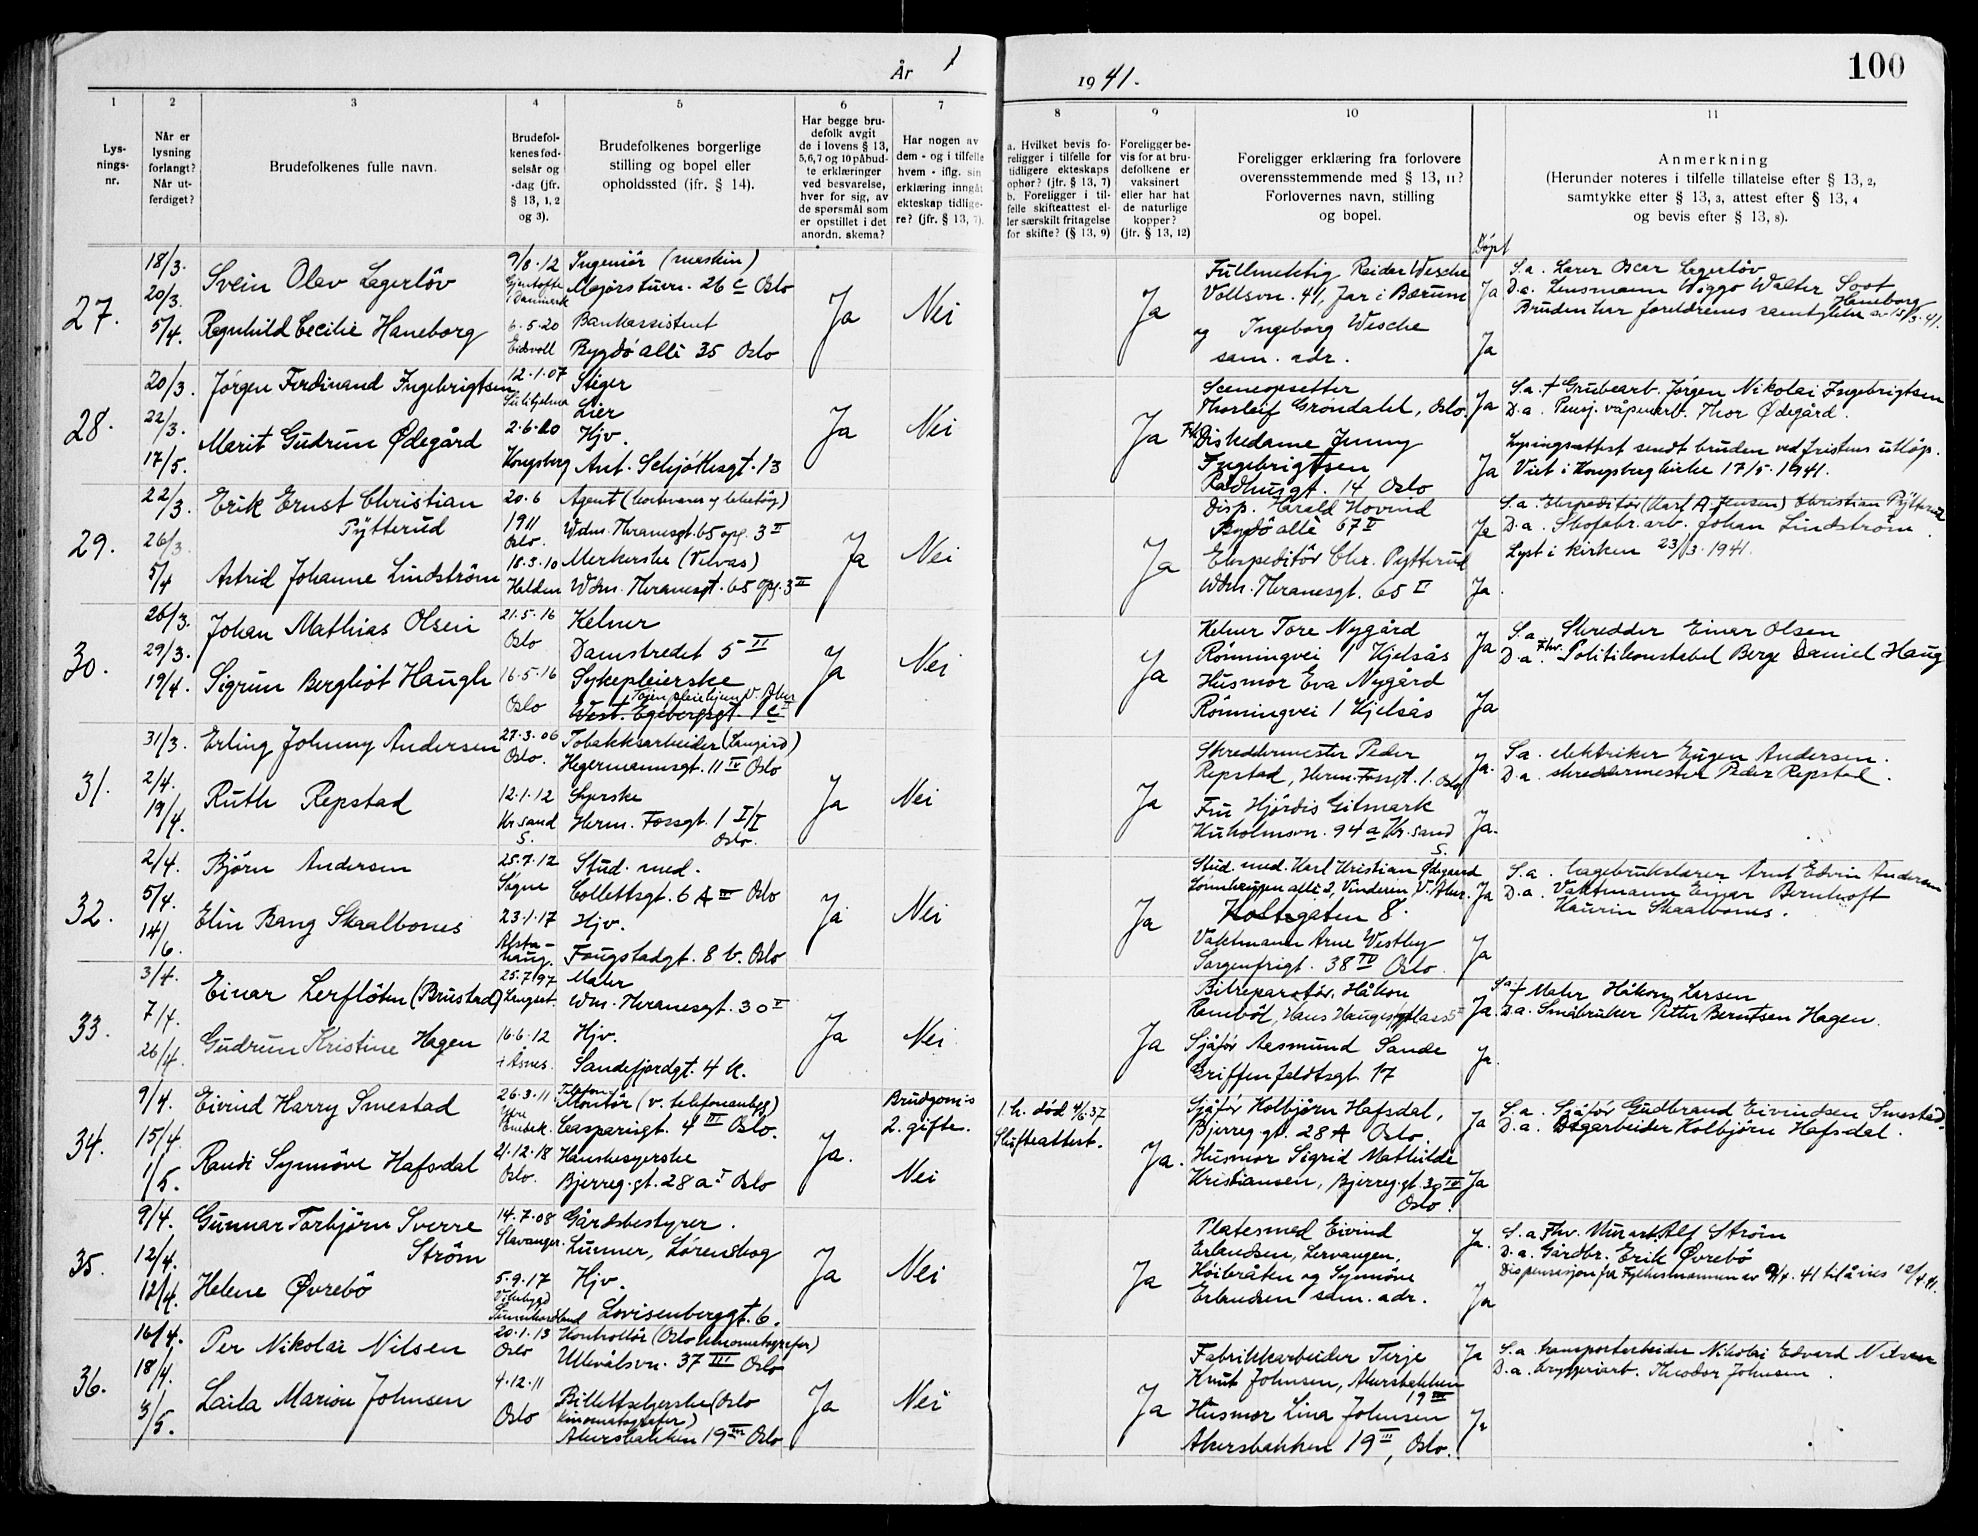 År 1
1941.
100
1
2
3
4
5
6
7
8
9
10
11
Lys-
nings-
nr.
Når er
lysning
forlangt?
Når ut-
ferdiget?
Brudefolkenes fulle navn.
Brudefol-
kenes fød-
selsår og
-dag (jfr.
§ 13, 1, 2
og 3).
Brudefolkenes borgerlige
stilling og bopel eller
opholdssted (ifr. § 14).
Har begge bru-
defolk avgit
de i lovens § 13,
5,6,7 og 10 påbud-
te erklæringer
ved besvarelse,
hver for sig, av
de spørsmål som
er opstillet i det
anordn. skema?
Har nogen av
dem - og i tilfelle
hvem - iflg. sin
erklæring inngått
ekteskap tidlige-
re? (jfr. § 13, 7).
a. Hvilket bevis fo-
religger i tilfelle for
tidligere ekteskaps
ophør? (jfr. § 13, 7)
b. Foreligger i til-
felle skifteattest el-
ler særskilt fritagelse
for skifte? (§ 13, 9)
Foreligger be-
vis for at bru-
defolkene er
vaksinert
eller har hat
de naturlige
kopper?
(jfr. § 13, 12)
Foreligger erklæring fra forlovere
overensstemmende med § 13, 11?
Forlovernes navn, stilling
og bopel.
Døpt
Anmerkning
(Herunder noteres i tilfelle tillatelse efter § 13, 2,
samtykke efter § 13, 3, attest efter § 13, 4
og bevis efter § 13, 8).
27.
18/3.
20/3.
5/4.
Svein Olav Lagerlöv
Ragnhild Cecilie Haneborg
9/8.12
Gjentofte
Danmark
6.5.20
Eidsvoll
Ingeniör (maskin)
Majorstuvn. 26 c Oslo
Bankassistent
Bygdö allé 35 Oslo
Ja
Nei
Ja
Fullmektig Reidar Wesche
Vollsvn. 41, Jar i Bærum
og Ingeborg Wesche
sam. adr.
Ja
Ja
S.a. Lærer Oscar Lagerlöv
D.a. Lensmann Viggo Walter Soot
Haneborg
Bruden har foreldrenes samtykke av 15/3.41.
28.
20/3.
22/3.
17/5.
Jörgen Ferdinand Ingebrigtsen
Marit Gudrun Ødegård
12.1.07
Sulitjelma
2.6.20
Kongsberg
Stiger
Lier
Hjv.
Ant. Schjøthsgt. 13
Ja
Nei
Ja
Sceneopsetter
Thorleif Gröndahl, Oslo.
Frk. Diskedame Jenny
Ingebrigtsen
Rådhusgt. 14 Oslo
Ja
Ja
S.a. † Grubearb. Jörgen Nikolai Ingebrigtsen
D.a. Pensj. våpenarb. Thor Ødegård.
Lysningsattest sendt bruden ved fristens utlöp.
Viet i Kongsberg kirke 17/5.1941.
29.
22/3.
26/3
5/4
Erik Ernst Christian
Pytterud
Astrid Johanne Lindström
20.6
1911
Oslo.
18.3.10
Halden
Agent
Wdm. Thranesgt. 65 opg. 3 II
Merkerske (Vilvas)
Wdm. Thranesgt. 65 opg. 3 II
Ja
Nei
Ja
Disp. Harald Hovind
Bygdö allé 67 II
Ekspeditör Chr. Pytterud
Wdm. Thranesgt. 65 II
Ja
Ja.
S.a. Ekspeditör (Karl A. Jensen) Christian Pytterud
D.a. Skofabr. arb. Johan Lindström.
Lyst i kirken 23/3.1941.
30.
26/3.
29/3.
19/4.
Johan Mathias Olsen
Sigrun Bergliot Haugh
21.5.16
Oslo
16.5.16
Oslo
Kelner
Damstredet 5 II
Sykepleierske
Töien pleiehjem V. Aker
West. Egebergsgt. 1 c
Ja
Nei
Ja
Kelner Tore Nygård
Rönningvei 1 Kjelsås
Husmor Eva Nygård
Rönningvei 1 Kjelsås
Ja
Ja
S.a. Skredder Einar Olsen
D.a. Fhv. Politikonstabel Berge Daniel Haug
31.
31/3.
2/4.
19/4.
Erling Johnny Andersen
Ruth Repstad
27.3.06
Oslo.
12.1.12
Kr.sand
S.
Tobakksarbeider (Langård)
Hegermannsgt. 11 IV Oslo
Syerske
Herm. Fossgt. 1 I/I
Oslo.
Ja
Nei
Ja
Skreddermester Peder
Repstad, Herm. Fossgt. 1. Oslo
Fru Hjördis Gitmark
Kuholmsvn. 94 a Kr.sand
S.
Ja.
Ja.
S.a. elektriker Eugen Andersen.
D.a. skreddermester Peder Repstad.
32.
2/4.
5/4.
14/6.
Björn Andersen
Elin Bang Skaalbones
25.7.12
Søgne
23.1.17
Alsta-
haug.
Stud. med.
Collettsgt. 6 A III Oslo
Hjv.
Fougstadgt. 8 b. Oslo
Ja
Nei
Ja
Stud. med. Karl Kristian Ødegaard
Vinderen V. Aker.
Holtegaten 8.
Vaktmann Arne Westby
Sorgenfrigt. 38 IV Oslo.
Ja
Ja
S.a. hagebrukslærer Arnt Edvin Andersen
D.a. Vaktmann Einar Bernhoft
Kaurin Skaalbones.
33.
3/4.
7/4.
26/4.
Einar Lerflöten (Brustad)
Gudrun Kristine Hagen
25.7.97
Langset.
16.6.12
i Åsnes.
Maler
Wm. Thranesgt. 30 V
Hjv.
Sandefjordgt. 4 k.
Ja
Nei
Ja
Bilreparatör. Håkon
Ramböl, Hans Haugesplass 5 II
Sjåför Aasmund Sande
Griffenfeldtsgt. 17
Ja
Ja.
S.a. † Maler Håkon Larsen
D.a. Småbruker Petter Berntsen Hagen.
34.
9/4.
15/4.
1/5.
Eivind Harry Smestad
Randi Synnöve Hafsdal
26.3.11
Ytre
Enebak.
21.12.18
Oslo.
Telefon-
Montör (v. telefonanlegg)
Casparisgt. 4 III Oslo.
Hanskesyerske
Bjerreg.gt. 28 a I Oslo
Ja.
Brudgom's
2. gifte.
Nei
1.h. död 4/6.37
Skifteattest.
Ja.
Sjåför Kolbjörn Hafsdal,
Bjerreg.gt. 28 A Oslo.
Husmor Sigrid Mathilde
Kristiansen, Bjerreg.gt. 30 IV
Oslo.
Ja
Ja
S.a. Sjåför Gudbrand Eivindsen Smestad.
D.a. Dagarbeider Kolbjörn Hafsdal.
35.
9/4.
12/4.
12/4.
Gunnar Torbjörn Sverre
Ström
Helene Øvrebö
14.7.08
Stavanger.
5.9.17
Sunnhordland
Gårdsbestyrer.
Lunner, Lörenskog
Hjv.
Lovisenberggt. 6.
Ja
Nei
Ja
Platesmed Eivind
Erlandsen, Lervangen,
Höibråten og Synnöve
Erlandsen sam. adr.
Ja.
Ja
S.a. Fhv. Murarb. Alf Ström
D.a. Gårdbr. Erik Øvrebö
Dispensasjon fra Fylkesmannen av 9/4.41 til å vies 12/4.41.
36.
16/4.
18/4.
3/5.
Per Nikolai Nilsen
Laila Marion Johnsen
20.1.13
Oslo
4.12.11
Oslo
Kontrollör (Oslo kinematografer)
Ullevålsvn. 37 III Oslo
Billettselgerske (Oslo
kinematografer)
Akersbakken 19 III Oslo
Ja
Nei
Ja
Fabrikkarbeider Terje
Knut Johnsen, Akersbakken
19 III
Husmor Lina Johnsen
Akersbakken 19 III, Oslo.
Ja
Ja
S.a. transportarbeider Nikolai Edvard Nilsen
D.a. bryggeriarb. Theodor Johnsen.